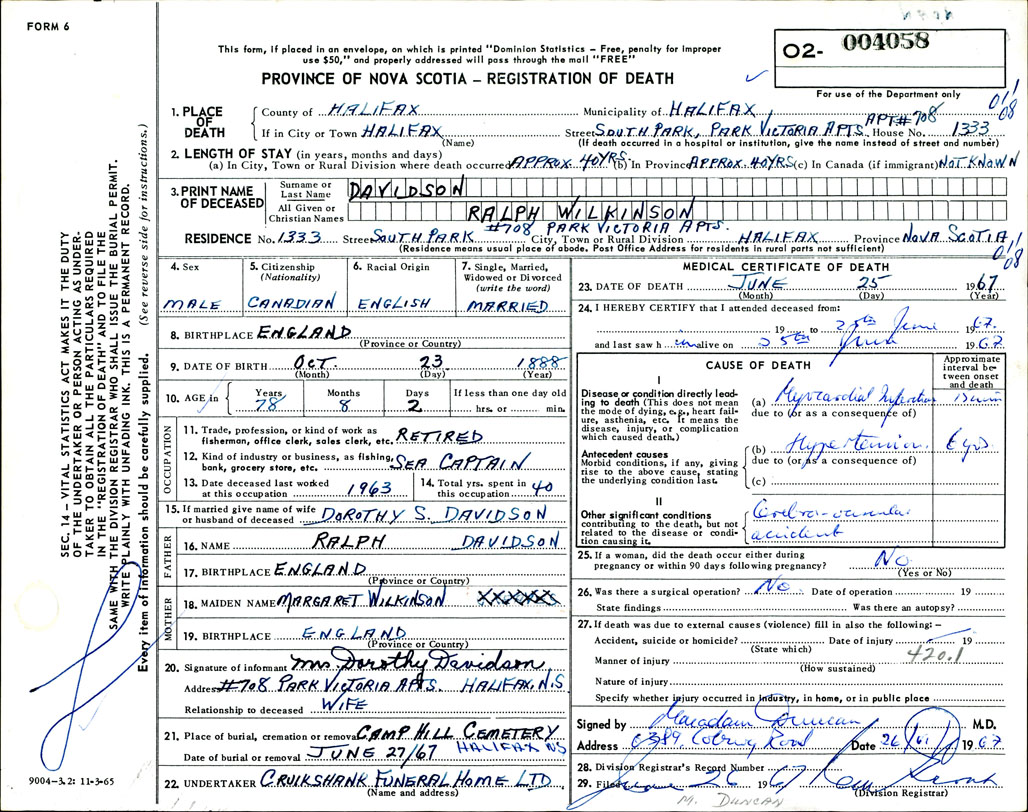 FORM 6
This form, if placed in an envelope, on which is printed "Dominion Statistics – Free, penalty for improper
use $50," and properly addressed will pass through the mail "FREE"
PROVINCE OF NOVA SCOTIA – REGISTRATION OF DEATH
O2- 004058
For use of the Department only
1. PLACE OF DEATH
County of HALIFAX Municipality of HALIFAX
APT#708
If in City or Town HALIFAX Street SOUTH PARK, PARK VICTORIA APTS. House No. 1333
(Name) (If death occurred in a hospital or institution, give the name instead of street and number)
2. LENGTH OF STAY (in years, months and days)
(a) In City, Town or Rural Division where death occurred APPROX. 40 YRS. (b) In Province APPROX. 40 YRS (c) In Canada (if immigrant) NOT KNOWN
3. PRINT NAME OF DECEASED
Surname or Last Name DAVIDSON
All Given or Christian Names RALPH WILKINSON
#708 PARK VICTORIA APTS.
RESIDENCE No. 1333 Street SOUTH PARK City, Town or Rural Division HALIFAX Province NOVA SCOTIA
(Residence means usual place of abode. Post Office Address for residents in rural parts not sufficient)
SEC. 14 – VITAL STATISTICS ACT MAKES IT THE DUTY
OF THE UNDERTAKER OR PERSON ACTING AS UNDER-
TAKER TO OBTAIN ALL THE PARTICULARS REQUIRED
IN THE "REGISTRATION OF DEATH" AND TO FILE THE
SAME WITH THE DIVISION REGISTRAR WHO SHALL ISSUE THE BURIAL PERMIT.
WRITE PLAINLY WITH UNFADING INK. THIS IS A PERMANENT RECORD.
Every item of information should be carefully supplied. (See reverse side for instructions.)
4. Sex
MALE
5. Citizenship
(Nationality)
CANADIAN
6. Racial Origin
ENGLISH
7. Single, Married,
Widowed or Divorced
(write the word)
MARRIED
8. BIRTHPLACE ENGLAND
(Province or Country)
9. DATE OF BIRTH OCT. 23 1888
(Month) (Day) (Year)
10. AGE in Years 78 Months 8 Days 2 If less than one day old
hrs. or min.
OCCUPATION
11. Trade, profession, or kind of work as
fisherman, office clerk, sales clerk, etc. RETIRED
12. Kind of industry or business, as fishing,
bank, grocery store, etc. SEA CAPTAIN
13. Date deceased last worked
at this occupation 1963
14. Total yrs. spent in
this occupation 40
15. If married give name of wife
or husband of deceased DOROTHY S. DAVIDSON
FATHER
16. NAME RALPH DAVIDSON
17. BIRTHPLACE ENGLAND
(Province or Country)
MOTHER
18. MAIDEN NAME MARGARET WILKINSON
19. BIRTHPLACE ENGLAND
(Province or Country)
20. Signature of informant Mrs. Dorothy Davidson
Address #708 PARK VICTORIA APTS. HALIFAX, N.S
Relationship to deceased WIFE
21. Place of burial, cremation or removal CAMP HILL CEMETERY
HALIFAX NS
Date of burial or removal JUNE 27/67
22. UNDERTAKER CRUIKSHANK FUNERAL HOME LTD.
(Name and address)
9004-3.2: 11-3-65
MEDICAL CERTIFICATE OF DEATH
23. DATE OF DEATH JUNE 25 1967
(Month) (Day) (Year)
24. I HEREBY CERTIFY that I attended deceased from:
19 to 25th June 1967.
and last saw h im alive on 25th June 1967
CAUSE OF DEATH
Approximate
interval be-
tween onset
and death
I
Disease or condition directly lead-
ing to death (This does not mean
the mode of dying, e.g., heart fail-
ure, asthenia, etc. It means the
disease, injury, or complication
which caused death.)
(a) Myocardial Infarction
due to (or as a consequence of)
Antecedent causes
Morbid conditions, if any, giving
rise to the above cause, stating
the underlying condition last.
(b) Hypertension
due to (or as a consequence of)
(c)
II
Other significant conditions
contributing to the death, but not
related to the disease or condi-
tion causing it.
Cerebro-vascular
accident
25. If a woman, did the death occur either during
pregnancy or within 90 days following pregnancy? No
(Yes or No)
26. Was there a surgical operation? No Date of operation 19
State findings Was there an autopsy?
27. If death was due to external causes (violence) fill in also the following: –
Accident, suicide or homicide? Date of injury 19
(State which)
420.1
Manner of injury
(How sustained)
Nature of injury
Specify whether injury occurred in industry, in home, or in public place
Signed by Macadam Duncan M.D.
Address 6389 Coburg Road Date 26/ 1967
28. Division Registrar's Record Number
29. Filed June 26 1967
(Division Registrar)
M. DUNCAN